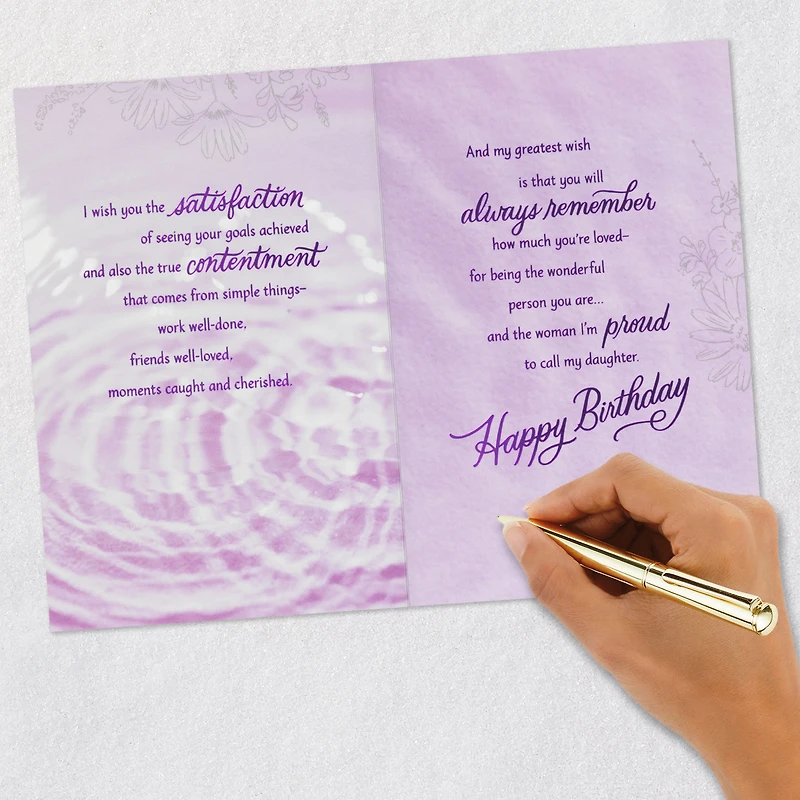 I wish you the satisfaction
of seeing your goals achieved
and also the true contentment
that comes from simple things–
work well-done,
friends well-loved,
moments caught and cherished.
And my greatest wish
is that you will
always remember
how much you're loved–
for being the wonderful
person you are...
and the woman I'm proud
to call my daughter.
Happy Birthday